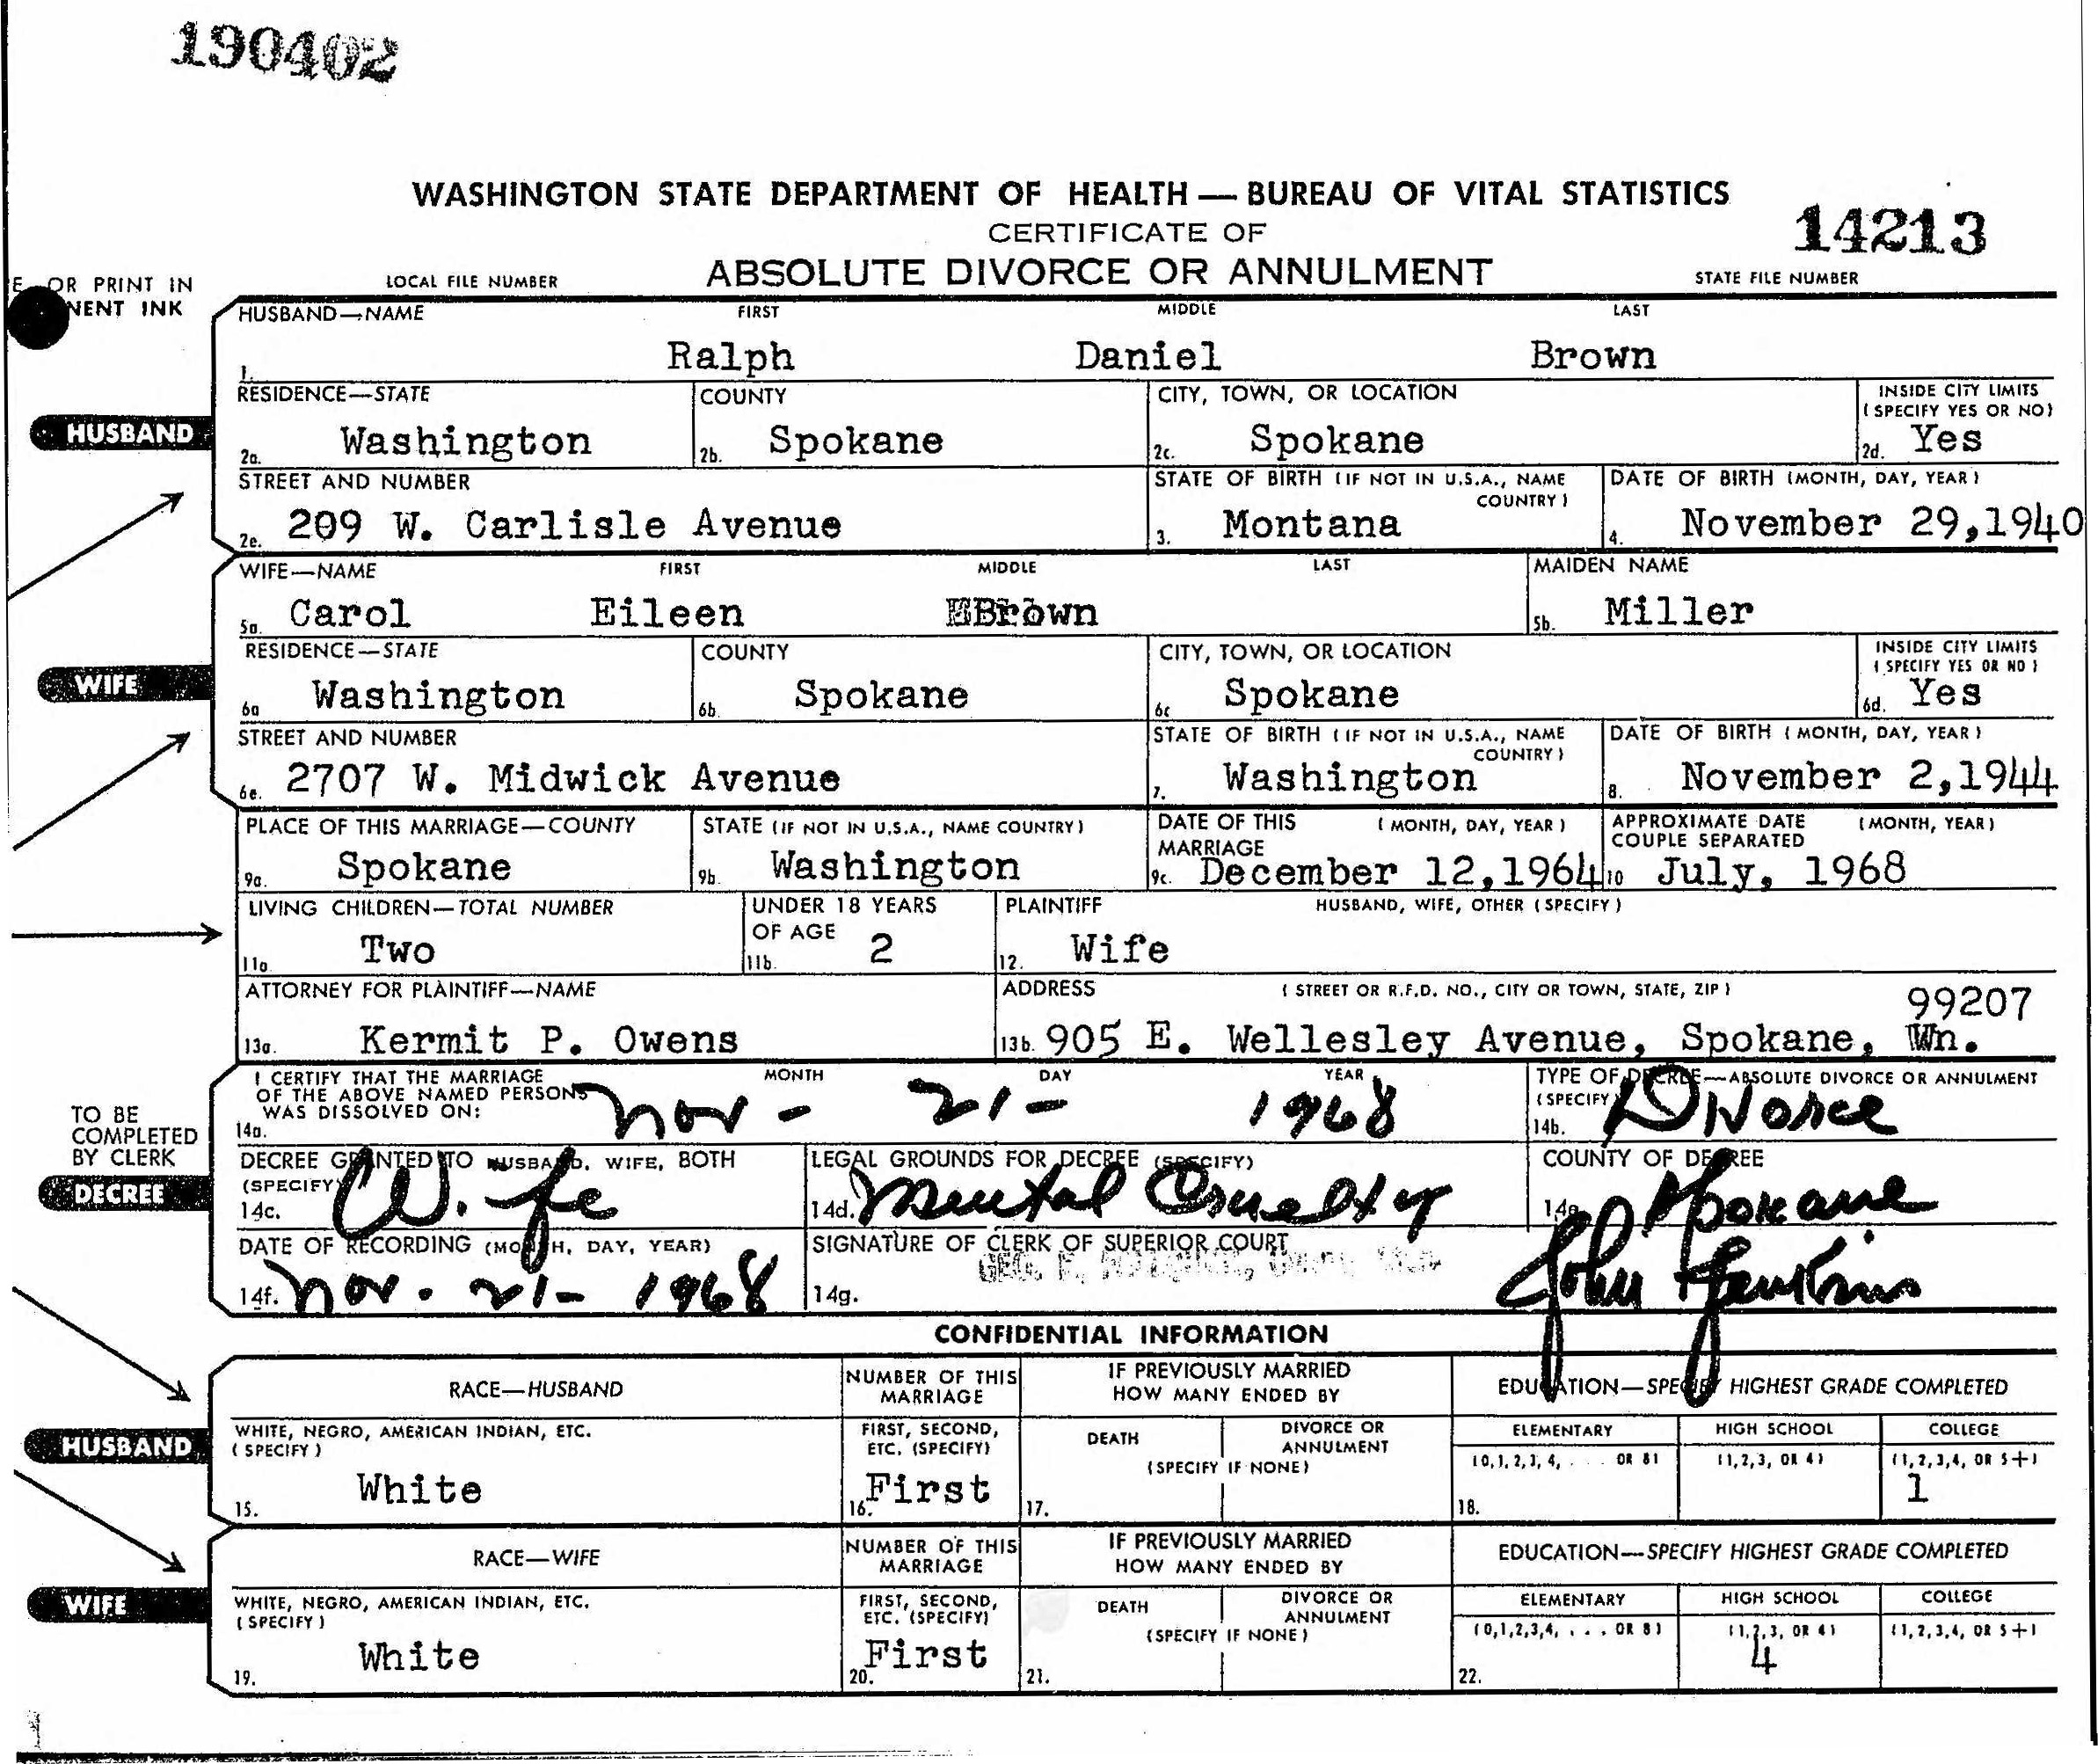 190402
WASHINGTON STATE DEPARTMENT OF HEALTH — BUREAU OF VITAL STATISTICS
CERTIFICATE OF
14213
ABSOLUTE DIVORCE OR ANNULMENT
E OR PRINT IN
NENT INK
LOCAL FILE NUMBER
STATE FILE NUMBER
HUSBAND—NAME FIRST MIDDLE LAST
1. Ralph Daniel Brown
HUSBAND
RESIDENCE—STATE COUNTY CITY, TOWN, OR LOCATION INSIDE CITY LIMITS
(SPECIFY YES OR NO)
2a. Washington 2b. Spokane 2c. Spokane 2d. Yes
STREET AND NUMBER STATE OF BIRTH (IF NOT IN U.S.A., NAME COUNTRY) DATE OF BIRTH (MONTH, DAY, YEAR)
2e. 209 W. Carlisle Avenue 3. Montana 4. November 29,1940
WIFE—NAME FIRST MIDDLE LAST MAIDEN NAME
5a. Carol Eileen Brown 5b. Miller
WIFE
RESIDENCE—STATE COUNTY CITY, TOWN, OR LOCATION INSIDE CITY LIMITS
(SPECIFY YES OR NO)
6a Washington 6b. Spokane 6c Spokane 6d. Yes
STREET AND NUMBER STATE OF BIRTH (IF NOT IN U.S.A., NAME COUNTRY) DATE OF BIRTH (MONTH, DAY, YEAR)
6e. 2707 W. Midwick Avenue 7. Washington 8. November 2,1944
PLACE OF THIS MARRIAGE—COUNTY STATE (IF NOT IN U.S.A., NAME COUNTRY) DATE OF THIS MARRIAGE (MONTH, DAY, YEAR) APPROXIMATE DATE COUPLE SEPARATED (MONTH, YEAR)
9a. Spokane 9b. Washington 9c. December 12,1964 10 July, 1968
LIVING CHILDREN—TOTAL NUMBER UNDER 18 YEARS OF AGE PLAINTIFF HUSBAND, WIFE, OTHER (SPECIFY)
11a Two 11b. 2 12. Wife
ATTORNEY FOR PLAINTIFF—NAME ADDRESS (STREET OR R.F.D. NO., CITY OR TOWN, STATE, ZIP) 99207
13a. Kermit P. Owens 13b. 905 E. Wellesley Avenue, Spokane, Wn.
TO BE
COMPLETED
BY CLERK
DECREE
I CERTIFY THAT THE MARRIAGE
OF THE ABOVE NAMED PERSONS
WAS DISSOLVED ON:
MONTH DAY YEAR
14a. Nov - 21- 1968
TYPE OF DECREE—ABSOLUTE DIVORCE OR ANNULMENT
(SPECIFY)
14b. Divorce
DECREE GRANTED TO HUSBAND, WIFE, BOTH
(SPECIFY)
14c. Wife
LEGAL GROUNDS FOR DECREE (SPECIFY)
14d. Mental Cruelty
COUNTY OF DECREE
14e Spokane
DATE OF RECORDING (MONTH, DAY, YEAR)
14f. Nov. 21- 1968
SIGNATURE OF CLERK OF SUPERIOR COURT
14g.
CONFIDENTIAL INFORMATION
HUSBAND
RACE—HUSBAND NUMBER OF THIS MARRIAGE IF PREVIOUSLY MARRIED HOW MANY ENDED BY EDUCATION—SPECIFY HIGHEST GRADE COMPLETED
WHITE, NEGRO, AMERICAN INDIAN, ETC.
(SPECIFY)
FIRST, SECOND,
ETC. (SPECIFY)
DEATH DIVORCE OR ANNULMENT
(SPECIFY IF NONE)
ELEMENTARY HIGH SCHOOL COLLEGE
(0,1,2,3,4, . . . OR 8) (1,2,3, OR 4) (1,2,3,4, OR 5+)
15. White 16. First 17. 18. 1
WIFE
RACE—WIFE NUMBER OF THIS MARRIAGE IF PREVIOUSLY MARRIED HOW MANY ENDED BY EDUCATION—SPECIFY HIGHEST GRADE COMPLETED
WHITE, NEGRO, AMERICAN INDIAN, ETC.
(SPECIFY)
FIRST, SECOND,
ETC. (SPECIFY)
DEATH DIVORCE OR ANNULMENT
(SPECIFY IF NONE)
ELEMENTARY HIGH SCHOOL COLLEGE
(0,1,2,3,4, . . . OR 8) (1,2,3, OR 4) (1,2,3,4, OR 5+)
19. White 20. First 21. 22. 4